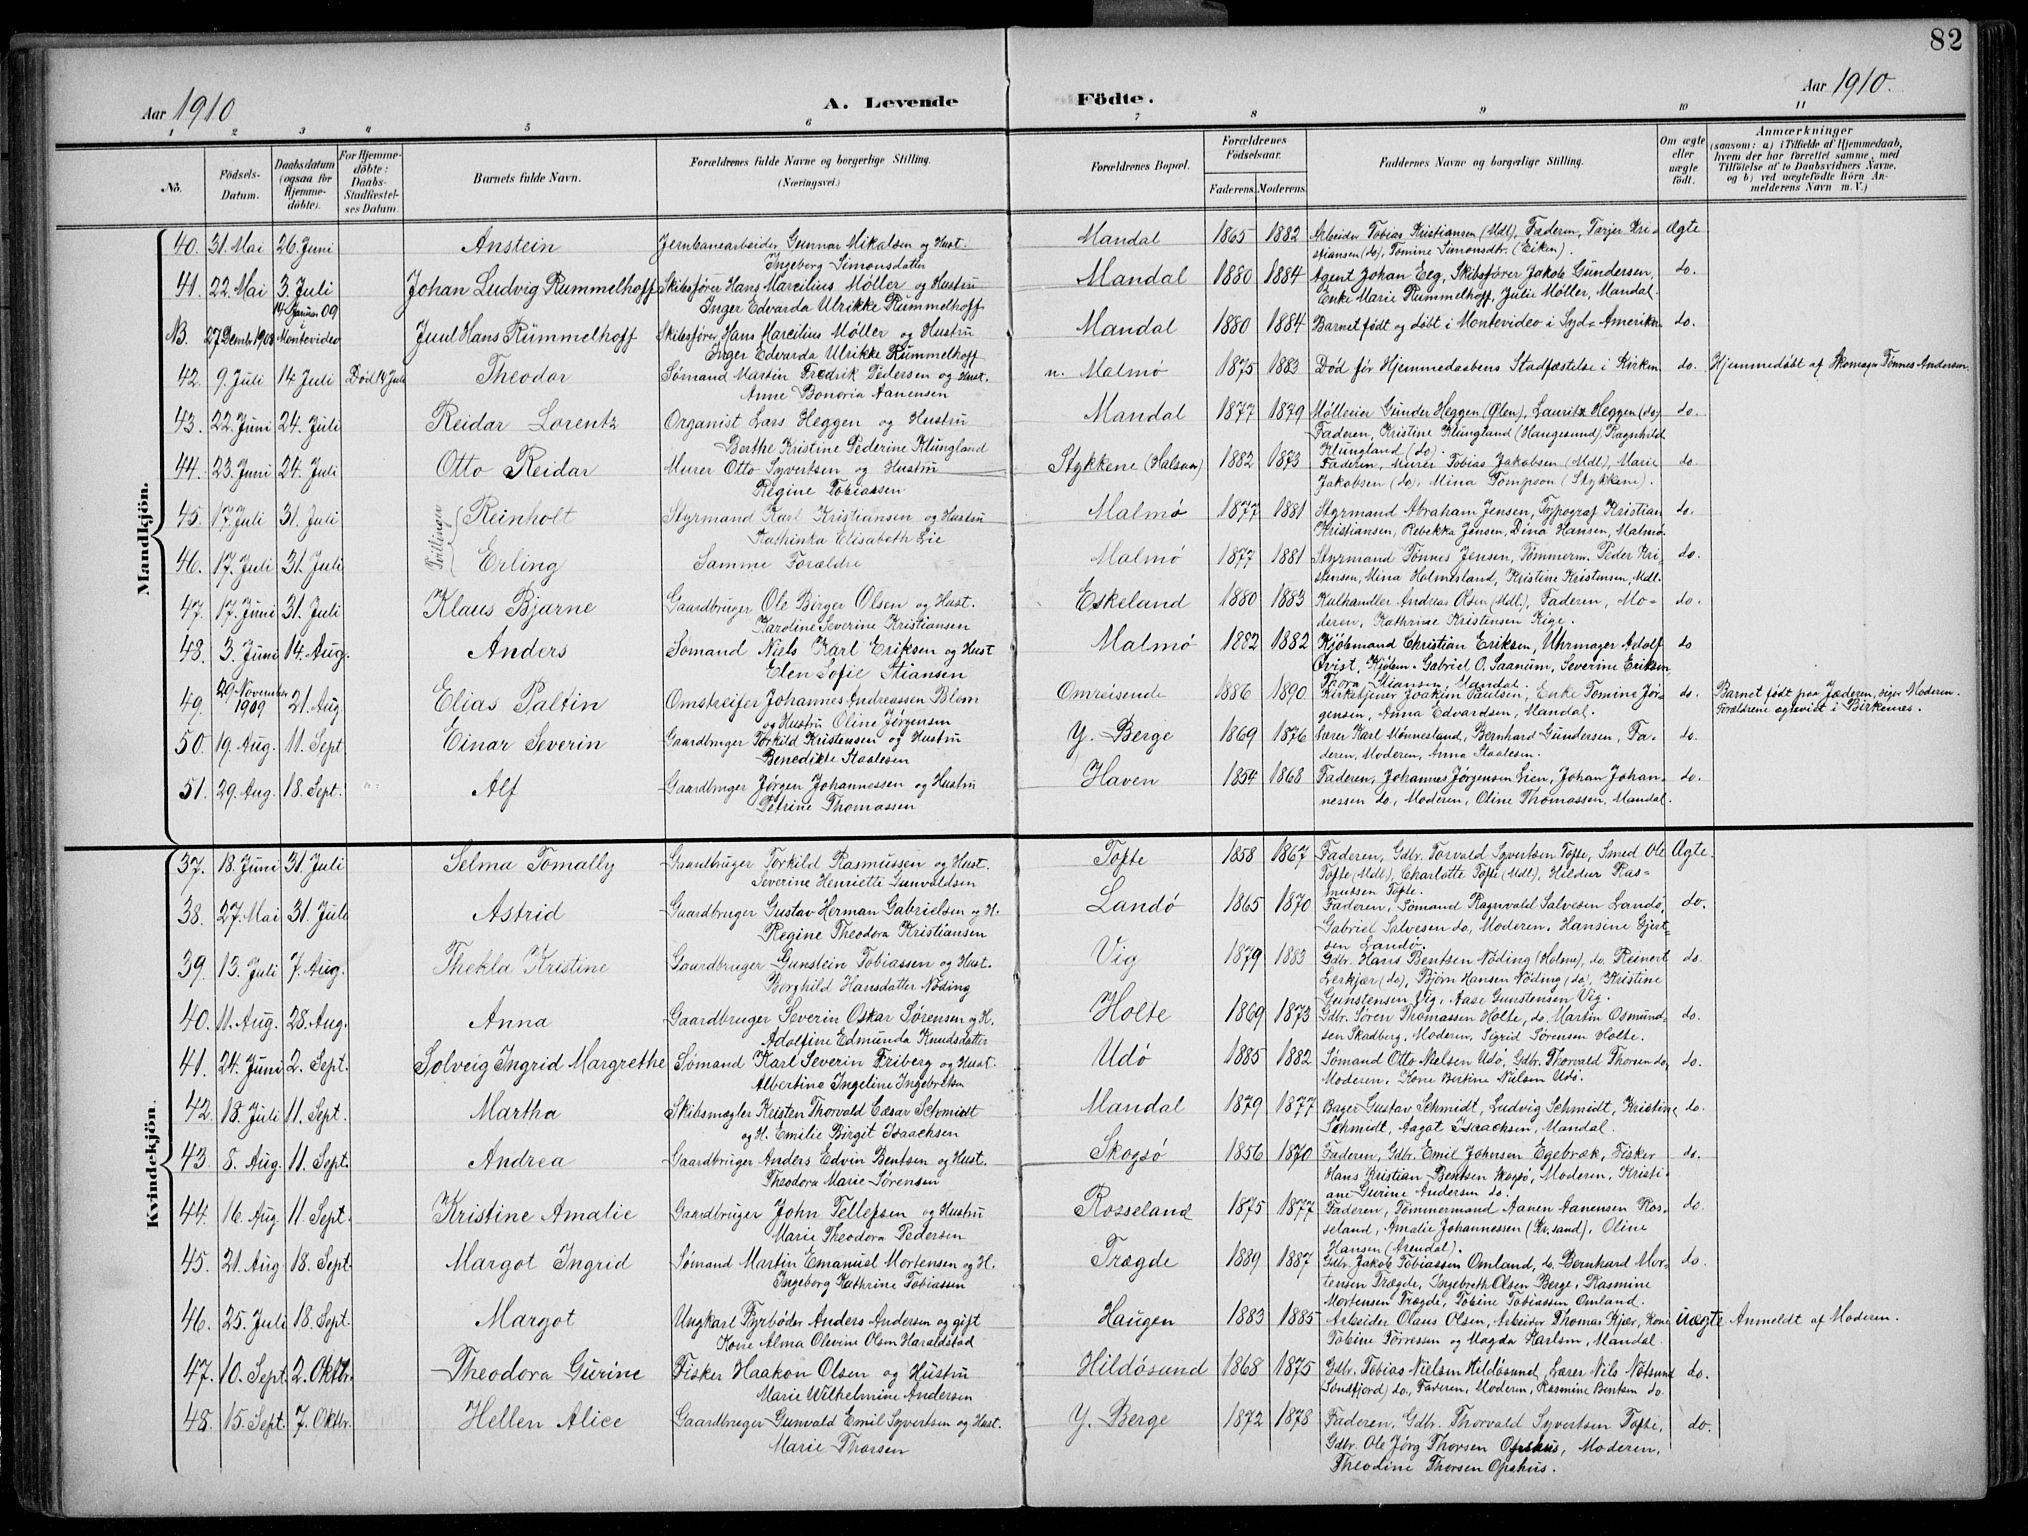 82
Aar 1910
A. Levende Födte.
Aar 1910.
1 2 3 4 5 6 7 8 9 10 11
No.
Födsels-Datum.
Daabsdatum (ogsaa for Hjemme-döbte).
For Hjemme-döbte: Daabs-Stadfæstel-ses Datum.
Barnets fulde Navn.
Forældrenes fulde Navne og borgerlige Stilling.
(Næringsvei.)
Forældrenes Bopæl.
Forældrenes Födselsaar.
Faderens. Moderens.
Faddernes Navne og borgerlige Stilling.
Om ægte eller uægte födt.
Anmærkninger
(saasom: a) i Tilfælde af Hjemmedaab, hvem der har forrettet samme, med Tilföielse af to Daabsvidners Navne, og b) ved uægtefödte Börn An-melderens Navn m. V.)
Mandkjön.
40. 31. Mai 26. Juni Anstein Jernbanearbeider Gunnar Mikalsen og Hust. Mandal 1865 1882 Arbeider Tobias Kristiansen (Mdl), Faderen, Tarjer Kri- Ægte
Ingeborg Simonsdatter stiansen (do), Tomine Simonsdtr. (Eiken).
41. 22. Mai 3. Juli Johan Ludvig Rummelhoff Skibsfører Hans Marcilius Möller og Hustru Mandal 1880 1884 Agent Johan Eeg, Skibsfører Jakob Gundersen, do.
Inger Edvarda Ulrikke Rummelhoff Enke Marie Rummelhoff, Julie Møller, Mandal.
14 Januar 09
NB. 27 Dembr 1908 Montevideo Juul Hans Rummelhoff Skibsfører Hans Marcilius Möller og Hustru Mandal 1880 1884 Barnet født og døbt i Montevideo i Syd-Amerika do.
Inger Edvarda Ulrikke Rummelhoff
42. 9. Juli 14. Juli Död 14 Juli Theodor Sømand Martin Fredrik Pedersen og Hust. n. Malmø 1875 1883 Død før Hjemmedaabens Stadfæstelse i Kirken do. Hjemmedøbt af Skomager Tønnes Andersen.
Anne Bonoria Aanensen
43. 22. Juni 24. Juli Reidar Lorentz Organist Lars Heggen og Hustru Mandal 1877 1879 Mølleier Gunder Heggen (Ølen), Lauritz Heggen (do) do.
Berthe Kristine Pederine Klungland Faderen, Kristine Klungland (Haugesund), Ragnhild
Klungland (do).
44. 23. Juni 24. Juli Otto Reidar Murer Otto Syvertsen og Hustru Stykkene (Halsaa) 1882 1873 Faderen, Murer Tobias Jakobsen (Mdl), Marie do.
Regine Tobiassen Jakobsen (do), Mina Tompson (Stykkene).
Tvillinger
45. 17. Juli 31. Juli Reinholt Styrmand Karl Kristiansen og Hustru Malmø 1877 1881 Styrmand Abraham Jensen, Typograf Kristian do.
Kathinka Elisabeth Lie Kristiansen, Rebekka Jensen, Dina Hansen, Malmø.
46. 17. Juli 31. Juli Erling Samme Forældre Malmø 1877 1881 Styrmand Tønnes Jensen, Tømmerm. Peder Kri- do.
stensen, Mina Holmesland, Kristine Kristensen, Mdl.
47. 17. Juni 31. Juli Klaus Bjarne Gaardbruger Ole Birger Olsen og Hust. Eskeland 1880 1883 Kulhandler Andreas Olsen (Mdl), Faderen, Mo- do.
Karoline Severine Kristiansen deren, Kathrine Kristensen Rige.
48. 3. Juni 14. Aug. Anders Sømand Niels Karl Eriksen og Hust Malmø 1882 1882 Kjøbmand Christian Eriksen, Uhrmager Adolf do
Elen Sofie Stiansen Qvist, Kjøbm. Gabriel O. Saanum, Severine Eriksen,
Thora Stiansen, Mandal.
49. 29. November 1909 21. Aug. Elias Paltin Omstreifer Johannes Andreassen Blom Omreisende 1886 1890 Kirketjener Joakim Paulsen, Enke Tomine Jør- do. Barnet født paa Jæderen, siger Moderen.
og Hustru Oline Jørgensen gensen, Anna Edvardsen, Mandal. Forældrene ogteviet i Birkenes.
50. 19. Aug. 11. Sept Einar Severin Gaardbruger Torkild Kristensen og Hustru Y. Berge 1869 1876 Lærer Karl Mønnesland, Bernhard Gundersen, Fa- do.
Benedikte Staalesen deren, Moderen, Anna Staalesen.
51. 29. Aug. 18. Sept. Alf Gaardbruger Jørgen Johannessen og Hustru Haven 1854 1868 Faderen, Johannes Jørgensen Lien, Johan Johan- do.
Petrine Thomassen nessen do, Moderen, Oline Thomassen, Mandal.
Kvindekjön.
37. 18. Juni 31. Juli Selma Tomally Gaardbruger Torkild Rasmussen og Hust. Tofte 1858 1867 Faderen, Gdbr. Torvald Syvertsen Tofte, Smed Ole Ægte.
Severine Henriette Gunvaldsen Tofte (Mdl), Charlotte Tofte (Mdl), Hildur Ras-
mussen Tofte.
38. 27. Mai 31. Juli Astrid Gaardbruger Gustav Herman Gabrielsen og H. Landø 1865 1870 Faderen, Sømand Ragnvald Salvesen Landø, do.
Regine Theodora Kristiansen Gabriel Salvesen do, Moderen, Hansine Gjert-
sen Landø.
39. 13. Juli 7. Aug. Thekla Kristine Gaardbruger Gunstein Tobiassen og Hust. Vig 1879 1883 Gdbr. Hans Bentsen Nöding (Holme), do. Reinert do.
Borghild Hansdatter Nöding Lerkjær (do), Bjørn Hansen Nöding (do), Kristine
Gunstensen Vig, Aase Gunstensen Vig.
40. 11. Aug. 28. Aug. Anna Gaardbruger Severin Oskar Sørensen og H. Holte 1869 1873 Gdbr. Søren Thomassen Holte, do. Martin Osmund- do.
Adolfine Edmunda Knudsdatter sen Skadberg, Moderen, Sigrid Sørensen Holte.
41. 24. Juni 2. Sept. Solveig Ingrid Margrethe Sømand Karl Severin Friberg og Hust. Udø 1885 1882 Sømand Otto Nielsen Udø, Gdbr. Thorvald Thorsen do, do.
Albertine Ingeline Ingebretsen Moderen, Kone Bertine Nielsen Udø.
42. 18. Juli 11. Sept. Martha Skibsmægler Kristen Thorvald Cæsar Schmidt Mandal 1879 1877 Bager Gustav Schmidt, Ludvig Schmidt, Kristine do.
og H. Emilie Birgit Isaachsen Schmidt, Aagot Isaachsen, Mandal.
43. 8. Aug. 11. Sept. Andrea Gaardbruger Anders Edvin Bentsen og Hust. Skogsø 1856 1870 Faderen, Gdbr. Emil Johnsen Egebræk, Fisker do.
Theodora Marie Sørensen Hans Kristian Bentsen Skogsø, Moderen, Kristi-
ane Gurine Andersen do.
44. 16. Aug. 11. Sept. Kristine Amalie Gaardbruger John Tellefsen og Hustru Rosseland 1875 1877 Faderen, Tømmermand Aanen Aanensen Ros- do.
Marie Theodora Pedersen seland, Amalie Johannessen (Kr.sand), Oline
Hansen (Arendal).
45. 21. Aug 18. Sept. Margot Ingrid Sømand Martin Emanuel Mortensen og H. Trægde 1889 1887 Gdbr. Jakob Tobiassen Omland, do. Bernhard Mor- do.
Ingeborg Kathrine Tobiassen tensen Trægde, Ingebreth Olsen Berge, Rasmine
Mortensen Trægde, Tobine Tobiassen Omland.
46. 25. Juli 18. Sept. Margot Ungkarl Fyrbøder Anders Andersen og gift Haugen 1883 1885 Arbeider Olaus Olsen, Arbeider Thomas Kjær, Kone uægte Anmeldt af Moderen.
Kone Alma Olevine Olsen Haraldstad Tobine Torressen og Magda Karlsen, Mandal.
47. 10. Sept. 2. Oktbr. Theodora Gurine Fisker Haakon Olsen og Hustru Hildøsund 1868 1875 Gdbr. Tobias Nielsen Hildøsund, Lærer Nils Nötsund do.
Marie Wilhelmine Andersen Sondfjord) do, Faderen, Moderen, Rasmine Bentsen do.
48. 15. Sept. 7. Oktbr. Hellen Alice Gaardbruger Gunvald Emil Syvertsen og Hust. Y. Berge 1872 1878 Faderen, Gdbr. Thorvald Syvertsen Tofte, do.
Marie Thorsen Gdbr. Ole Jørg Thorsen Opshus, Moderen,
Theodine Thorsen Opshus.